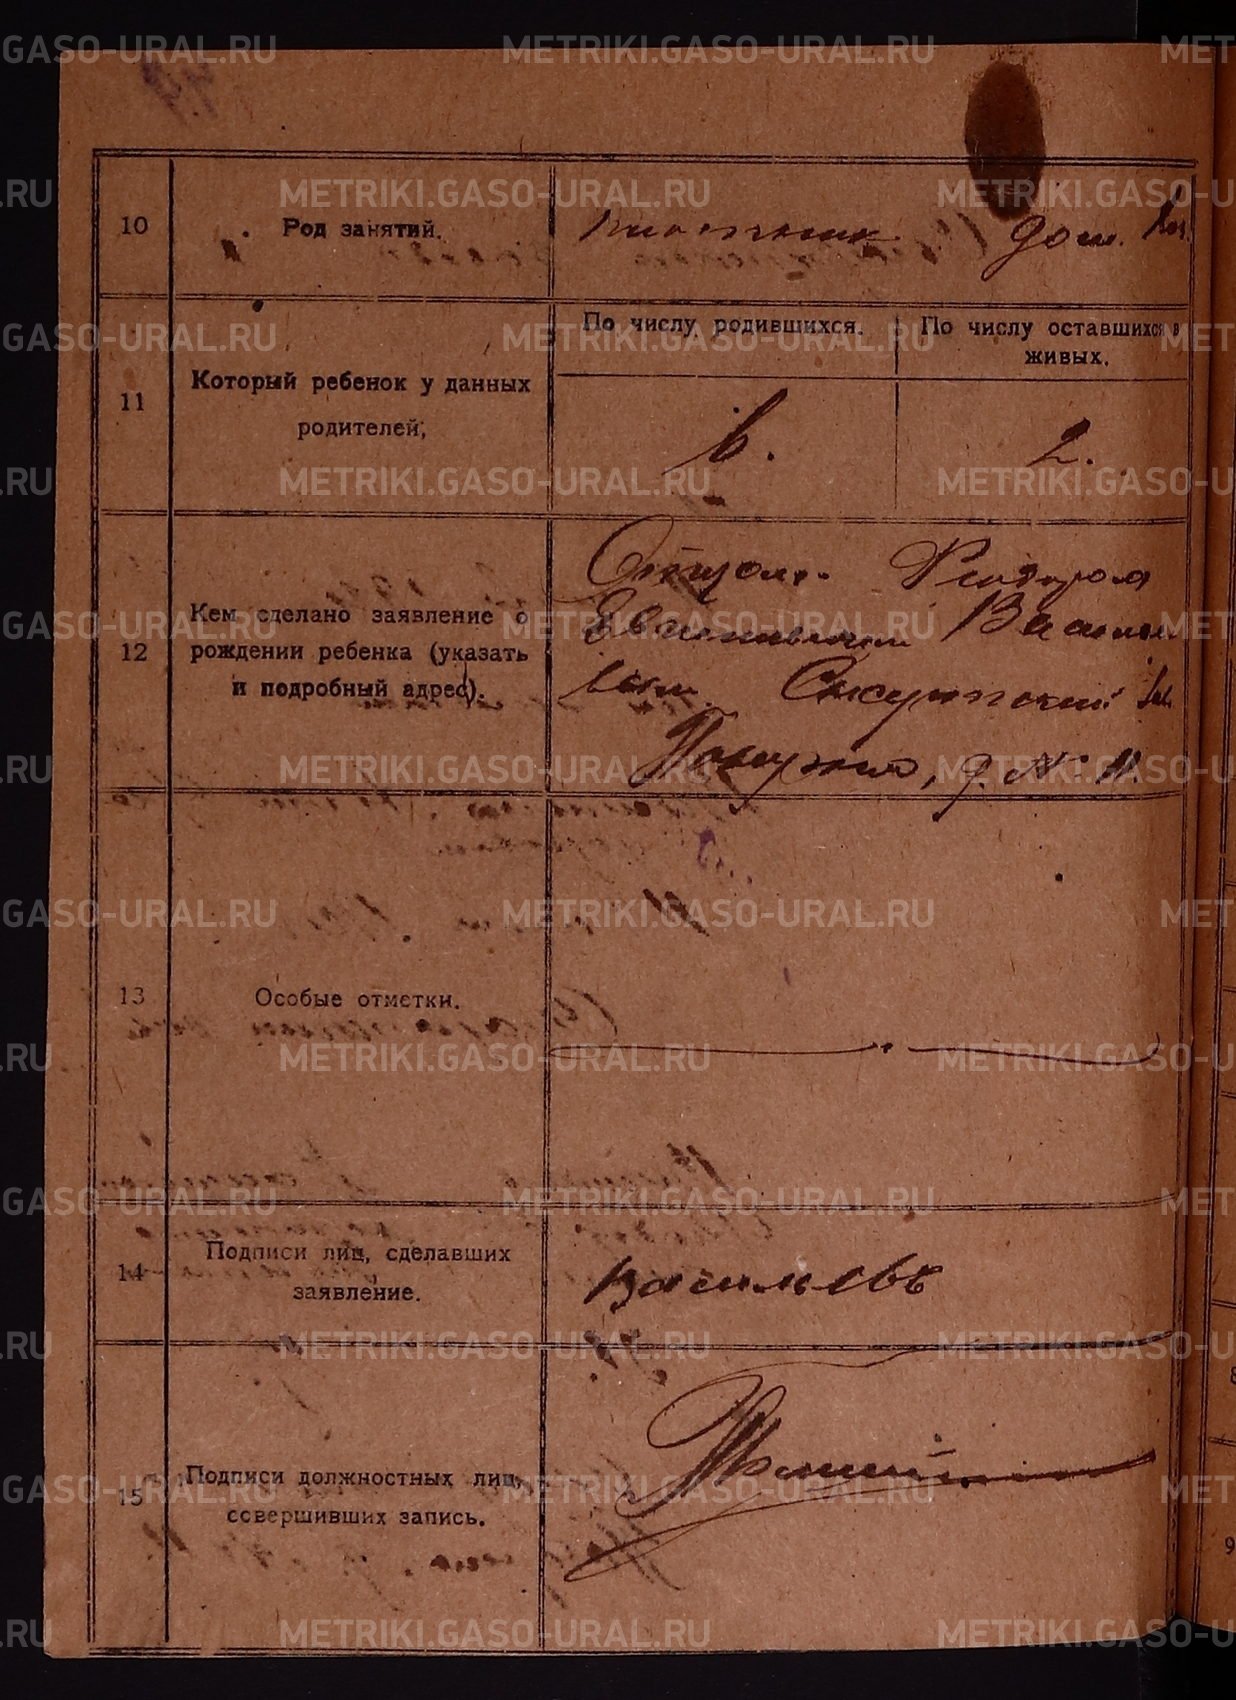 10
Род занятий.
плотник дом. хоз.
11
Который ребенок у данных
родителей;
По числу родившихся.
По числу оставшихся в
живых.
6.
2.
12
Кем сделано заявление о
рождении ребенка (указать
и подробный адрес).
Отцом. Феодором
Васильевым
д. № 11.
13
Особые отметки.
14
Подписи лиц, сделавших
заявление.
Васильевъ
15
Подписи должностных лиц,
совершивших запись.
METRIKI.GASO-URAL.RU